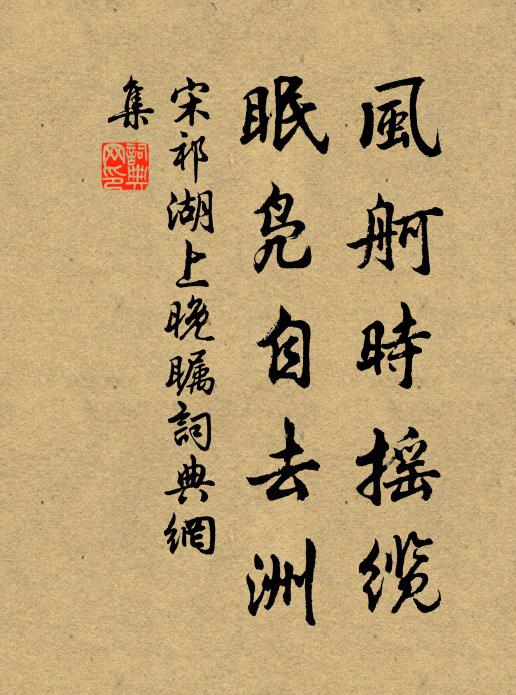 風舸時摇纜
眠鳧自去洲
宋祁湖上晚瞩詞典網
集
詞典
网印